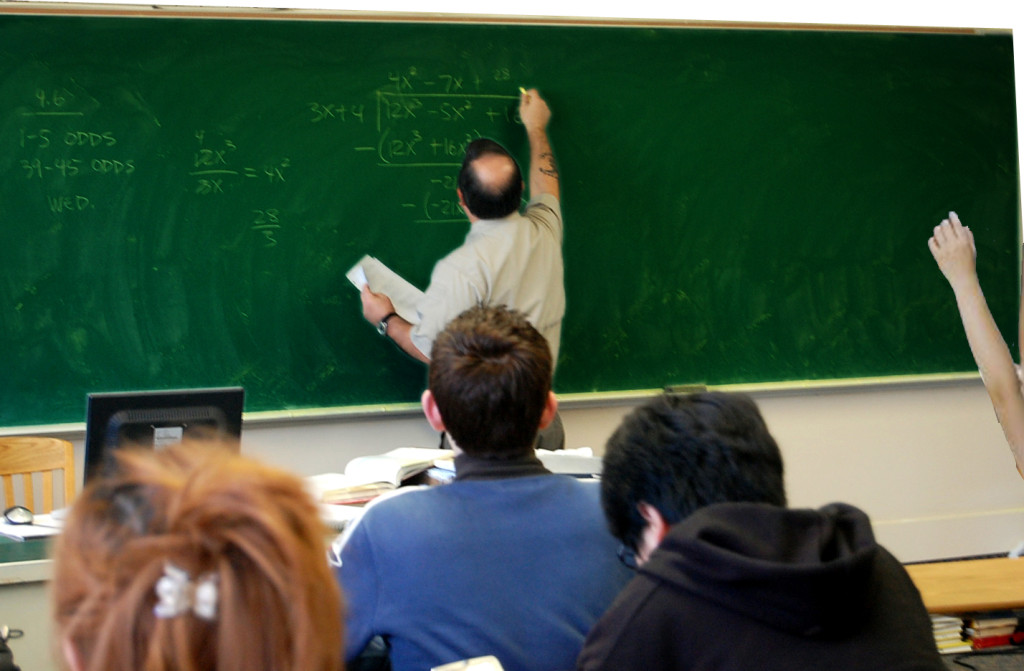 4.6
1-5 ODDS
39-45 ODDS
WED.
4
12x³
3x
= 4x²
28
3
4x² - 7x + 28
3x+4
12x³ - 5x² + 18
- (12x³ + 16x²)
-21
- (-21x